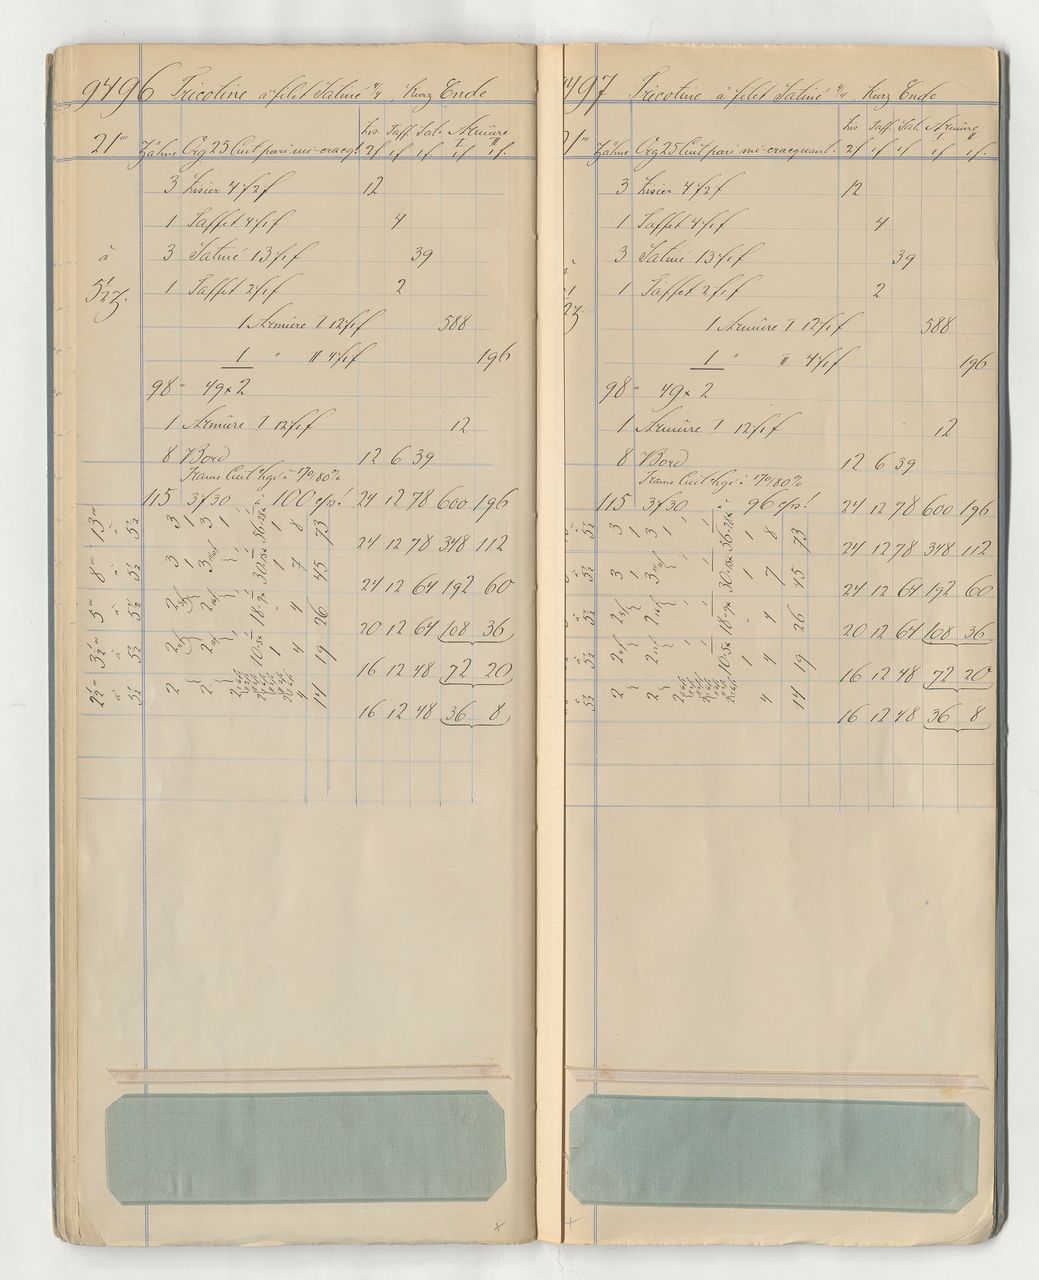 9496 Tricotine à filet Satiné 4/4, Kurz Ende
Lis. Taff. Sat. Armüre
I II
21''' Zähne Org 25 Cuit pari mi-cracqt. 2f 1f 1f 1f 1f.
3 Lisier 4/2f 12
1 Taffet 4/1f 4
à 3 Satiné 13/1f 39
5½ Z. 1 Taffet 2/1f 2
1 Armüre I 12/1f 588
1 " II 4/1f 196
98 - 49 x 2
1 Armüre I 12/1f 12
8 Bord 12 6 39
Trame Cuit à 70/80%
115 3f30 à 100 cps! 24 12 78 600 196
13''' à 5½ 3 1 3 1 56 1 8 73
24 12 78 348 112
8''' à 5½ 3 1 3 30 1 7 45
24 12 64 192 60
5''' à 5½ 2 2 18 4 26
20 12 64 108 36
3½''' à 5½ 2 2 10 1 4 19
16 12 48 72 20
1½''' à 5½ 2 2 2 4 14
16 12 48 36 8
x
497 Tricotine à filet Satiné 4/4, Kurz Ende
Lis Taff. Sat. Armüre
I II
1''' Zähne Org 25 Cuit pari mi-cracquant. 2f 1f 1f 1f 1f.
3 Lisier 4/2f 12
1 Taffet 4/1f 4
3 Satiné 13/1f 39
1 Taffet 2/1f 2
1 Armüre I 12/1f 588
1 " II 4/1f 196
98 - 49 x 2
1 Armüre I 12/1f 12
8 Bord 12 6 39
Trame Cuit à 70/80%
115 3f30 à 96 cps! 24 12 78 600 196
5½ 3 1 3 1 56 1 8 73
24 12 78 348 112
5½ 3 1 3 30 1 7 45
24 12 64 192 60
5½ 2 2 18 4 26
20 12 64 108 36
5½ 2 2 10 1 4 19
16 12 48 72 20
5½ 2 2 2 4 14
16 12 48 36 8
x